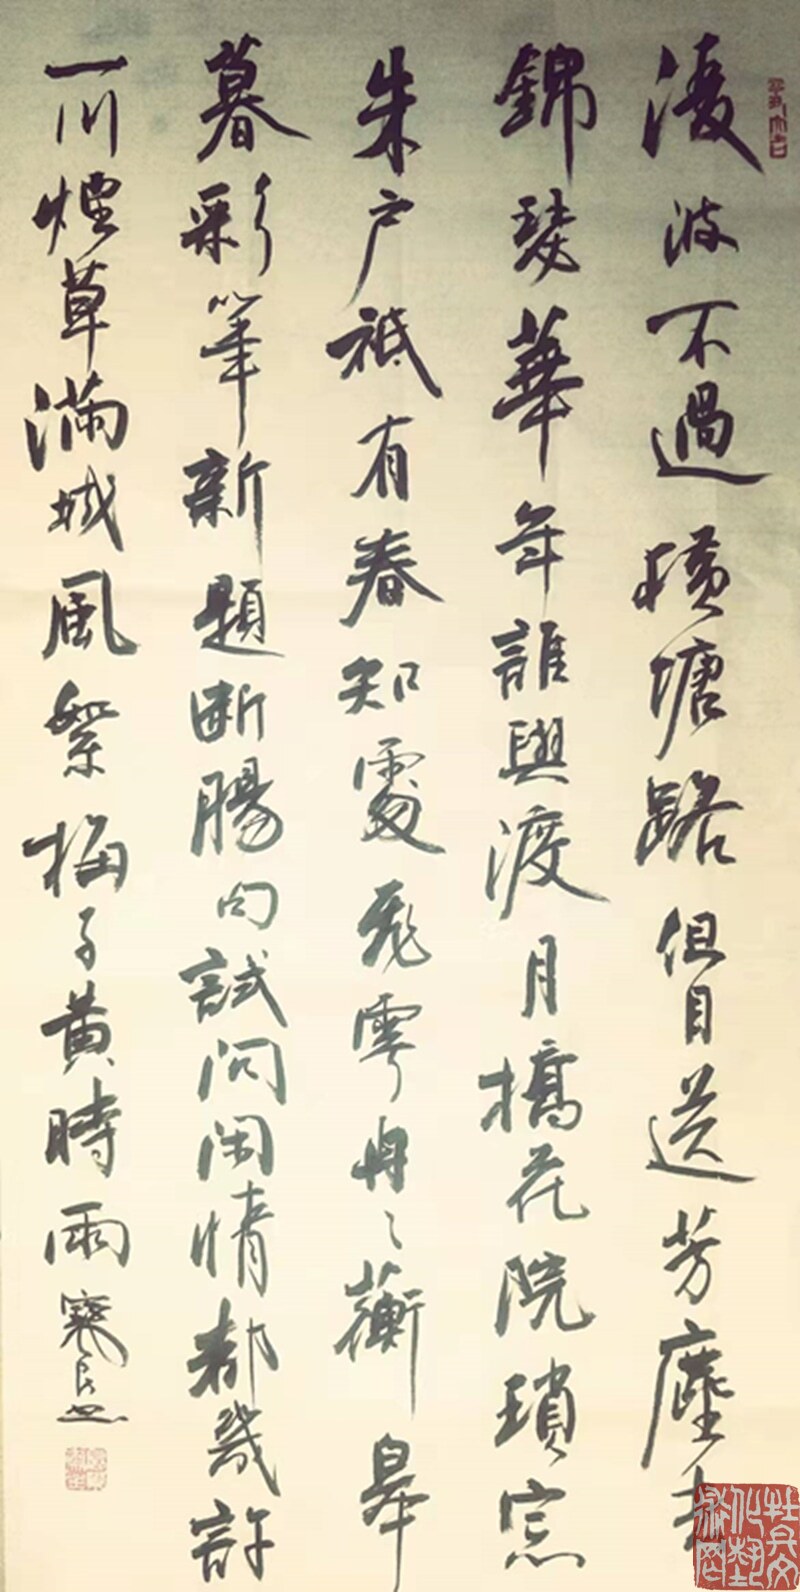 凌波不過橫塘路但目送芳塵去
錦瑟華年誰與渡月橋花院瑣窓
朱戶祗有春知處飛雲冉〻蘅皋
暮彩筆新題断腸句試问闲情都幾許
一川煙草滿城風絮梅子黄時雨